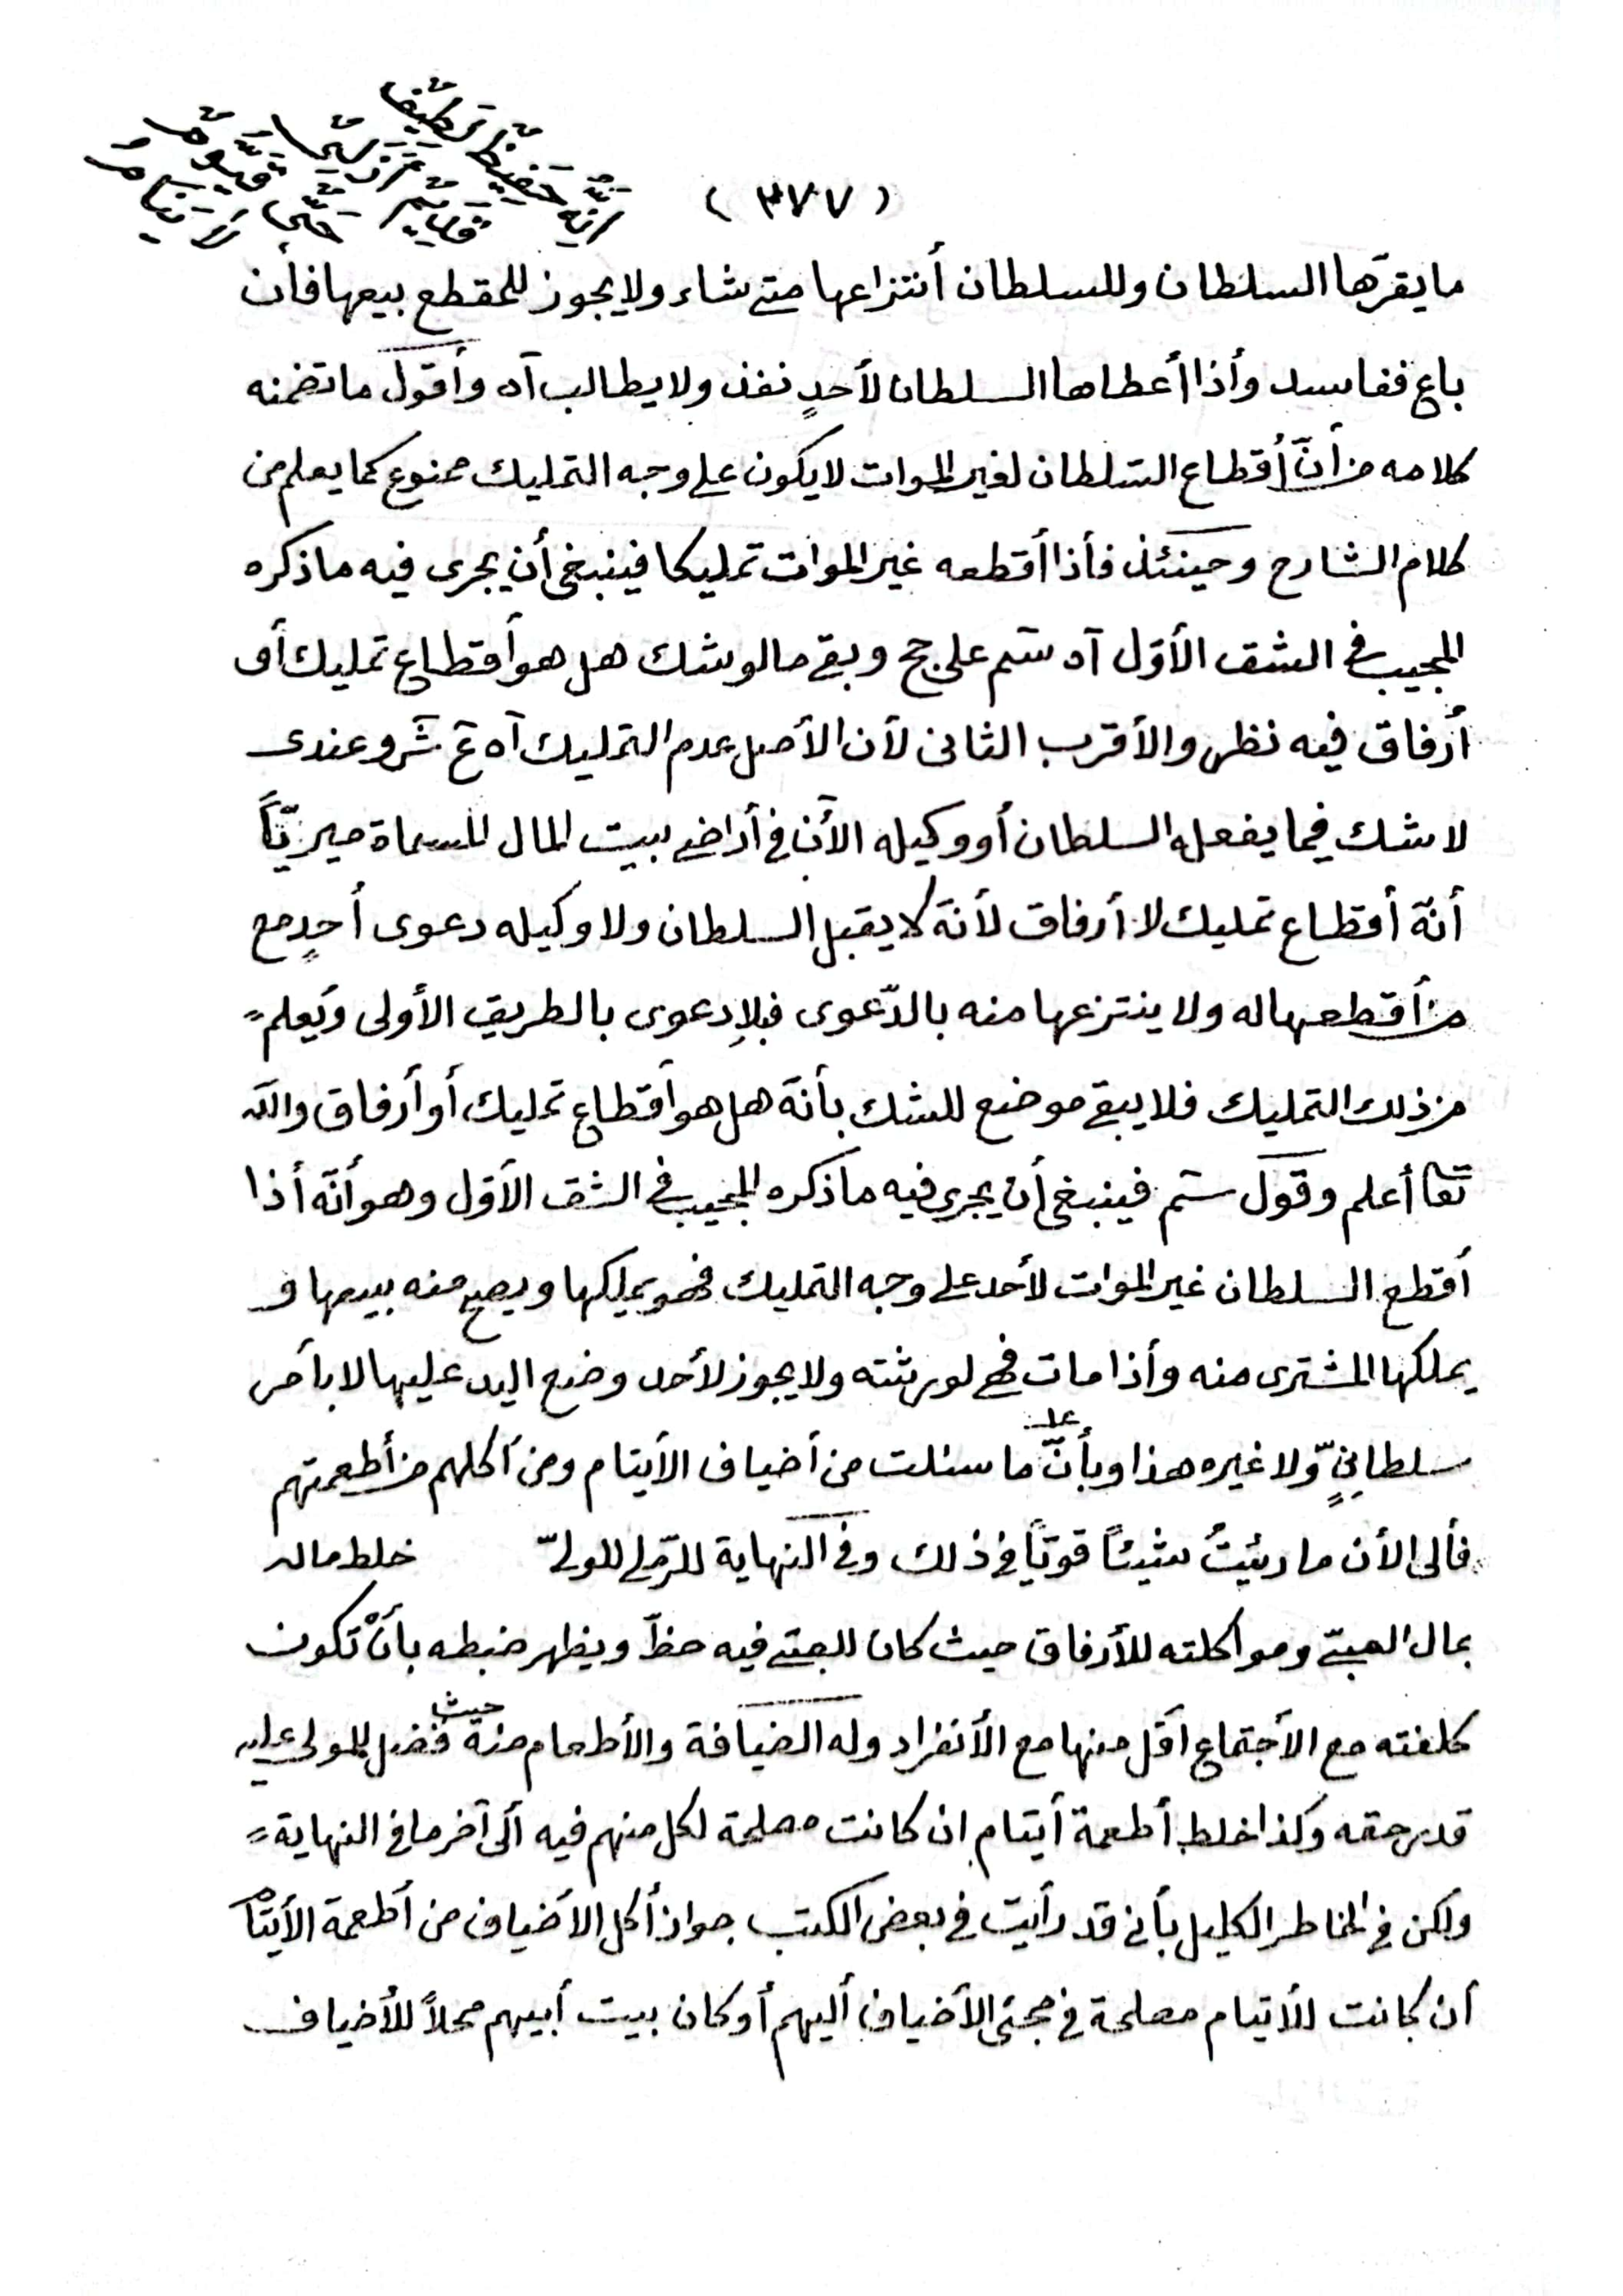 (٣٧٧)
ما يقرّها السلطان وللسلطان أنتزاعها متى شاء ولا يجوز للمقطع بيعها فأن
باع ففاسد وأذا أعطاها السلطان لأحدٍ نفذ ولا يطالب آه وأقول ما تضمنه
كلامه من أنّ أقطاع السّلطان لغير الموات لا يكون على وجه التمليك ممنوع كما يعلم من
كلام الشارح وحينئذ فأذا أقطعه غير الموات تمليكا فينبغى أن يجرى فيه ما ذكره
المجيب فى الشق الأوّل آه سم على حج وبقى ما لو شك هل هو أقطاع تمليك أو
أرفاق فيه نظر والأقرب الثانى لأن الأصل عدم التمليك آه ع ش وعندى
لا شك فيما يفعله السلطان أو وكيله الأن فى أراضى بيت المال المسماة ميريّاً
أنّه أقطاع تمليك لا أرفاق لأنّه لا يقبل السلطان ولا وكيله دعوى أحدٍ مع
من أقطعها له ولا ينتزعها منه بالدّعوى فبلا دعوى بالطريق الأولى ويعلم
من ذلك التمليك فلا يبقى موضع للشك بأنّه هل هو أقطاع تمليك أو أرفاق والله
تعا أعلم وقول سم فينبغى أن يجرى فيه ما ذكره المجيب فى الشق الأوّل وهو أنّه أذا
أقطع السلطان غير الموات لأحد على وجه التمليك فهو يملكها ويصح منه بيعها و
يملكها المشترى منه وأذا مات فهى لورثته ولا يجوز لأحد وضع اليد عليها لا بأمر
سلطانىٍّ ولا غيره هذا وبأنّ على ما سئلت من أضياف الأيتام ومن أكلهم من أطعمتهم
فألى الأن ما رئيتُ شيئاً قويّاً فى ذلك وفى النهاية للرّملى للولىّ خلط ماله
بمال الصبىّ ومواكلته للأرفاق حيث كان للصبى فيه حظّ ويظهر ضبطه بأنْ تكون
كلفته مع الأجتماع أقل منها مع الأنفراد وله الضيافة والأطعام منه حيث فضل للمولى عليه
قدر حقه وكذا خلط أطعمة أيتام ان كانت مصلحة لكل منهم فيه ألى آخر ما فى النهاية
ولكن فى الخاطر الكليل بأنى قد رأيت فى بعض الكتب جواز أكل الأضياف من أطعمة الأيتام
أن كانت للأتيام مصلحة فى مجئ الأضياف أليهم أو كان بيت أبيهم محلاً للأضياف